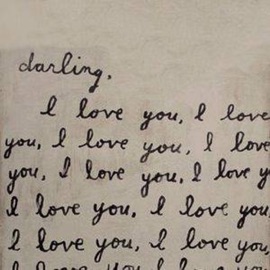 darling,
I love you, I love
you, I love you, I love
you, I love you, I love y
I love you, I love you
I love you, I love you
I love you I love you